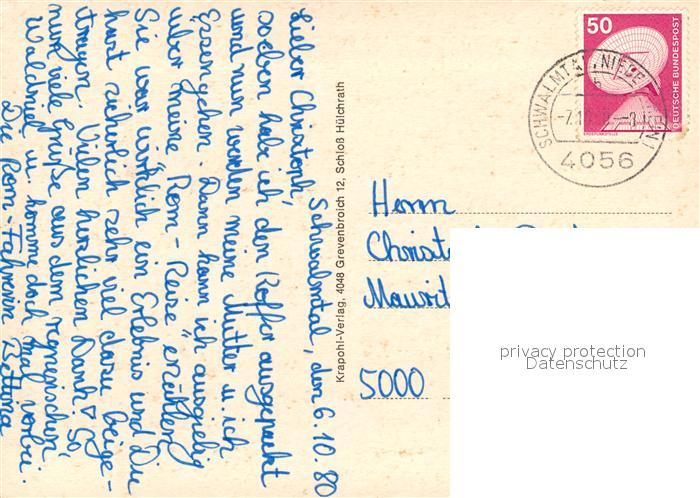 Schwalmtal, den 6.10.80
Lieber Christoph,
soeben habe ich den Koffer ausgepackt
und nun werden meine Mutter u. ich
Essen gehen. Dann kann ich ausgiebig
über meine "Rom-Reise" erzählen.
Sie war wirklich ein Erlebnis und Du
hast sicherlich sehr viel dazu beige-
tragen. Vielen herzlichen Dank! So,
nun viele Grüße aus dem regnerischen
Waldniel u. komme doch mal vorbei.
Die Rom-Fahrerin Bettina
Krapohl-Verlag, 4048 Grevenbroich 12, Schloß Hülchrath
50
DEUTSCHE BUNDESPOST
ERDEFUNKSTELLE
SCHWALMTAL, NIEDE
4056
Herrn
Christo
Maurit
5000
privacy protection
Datenschutz